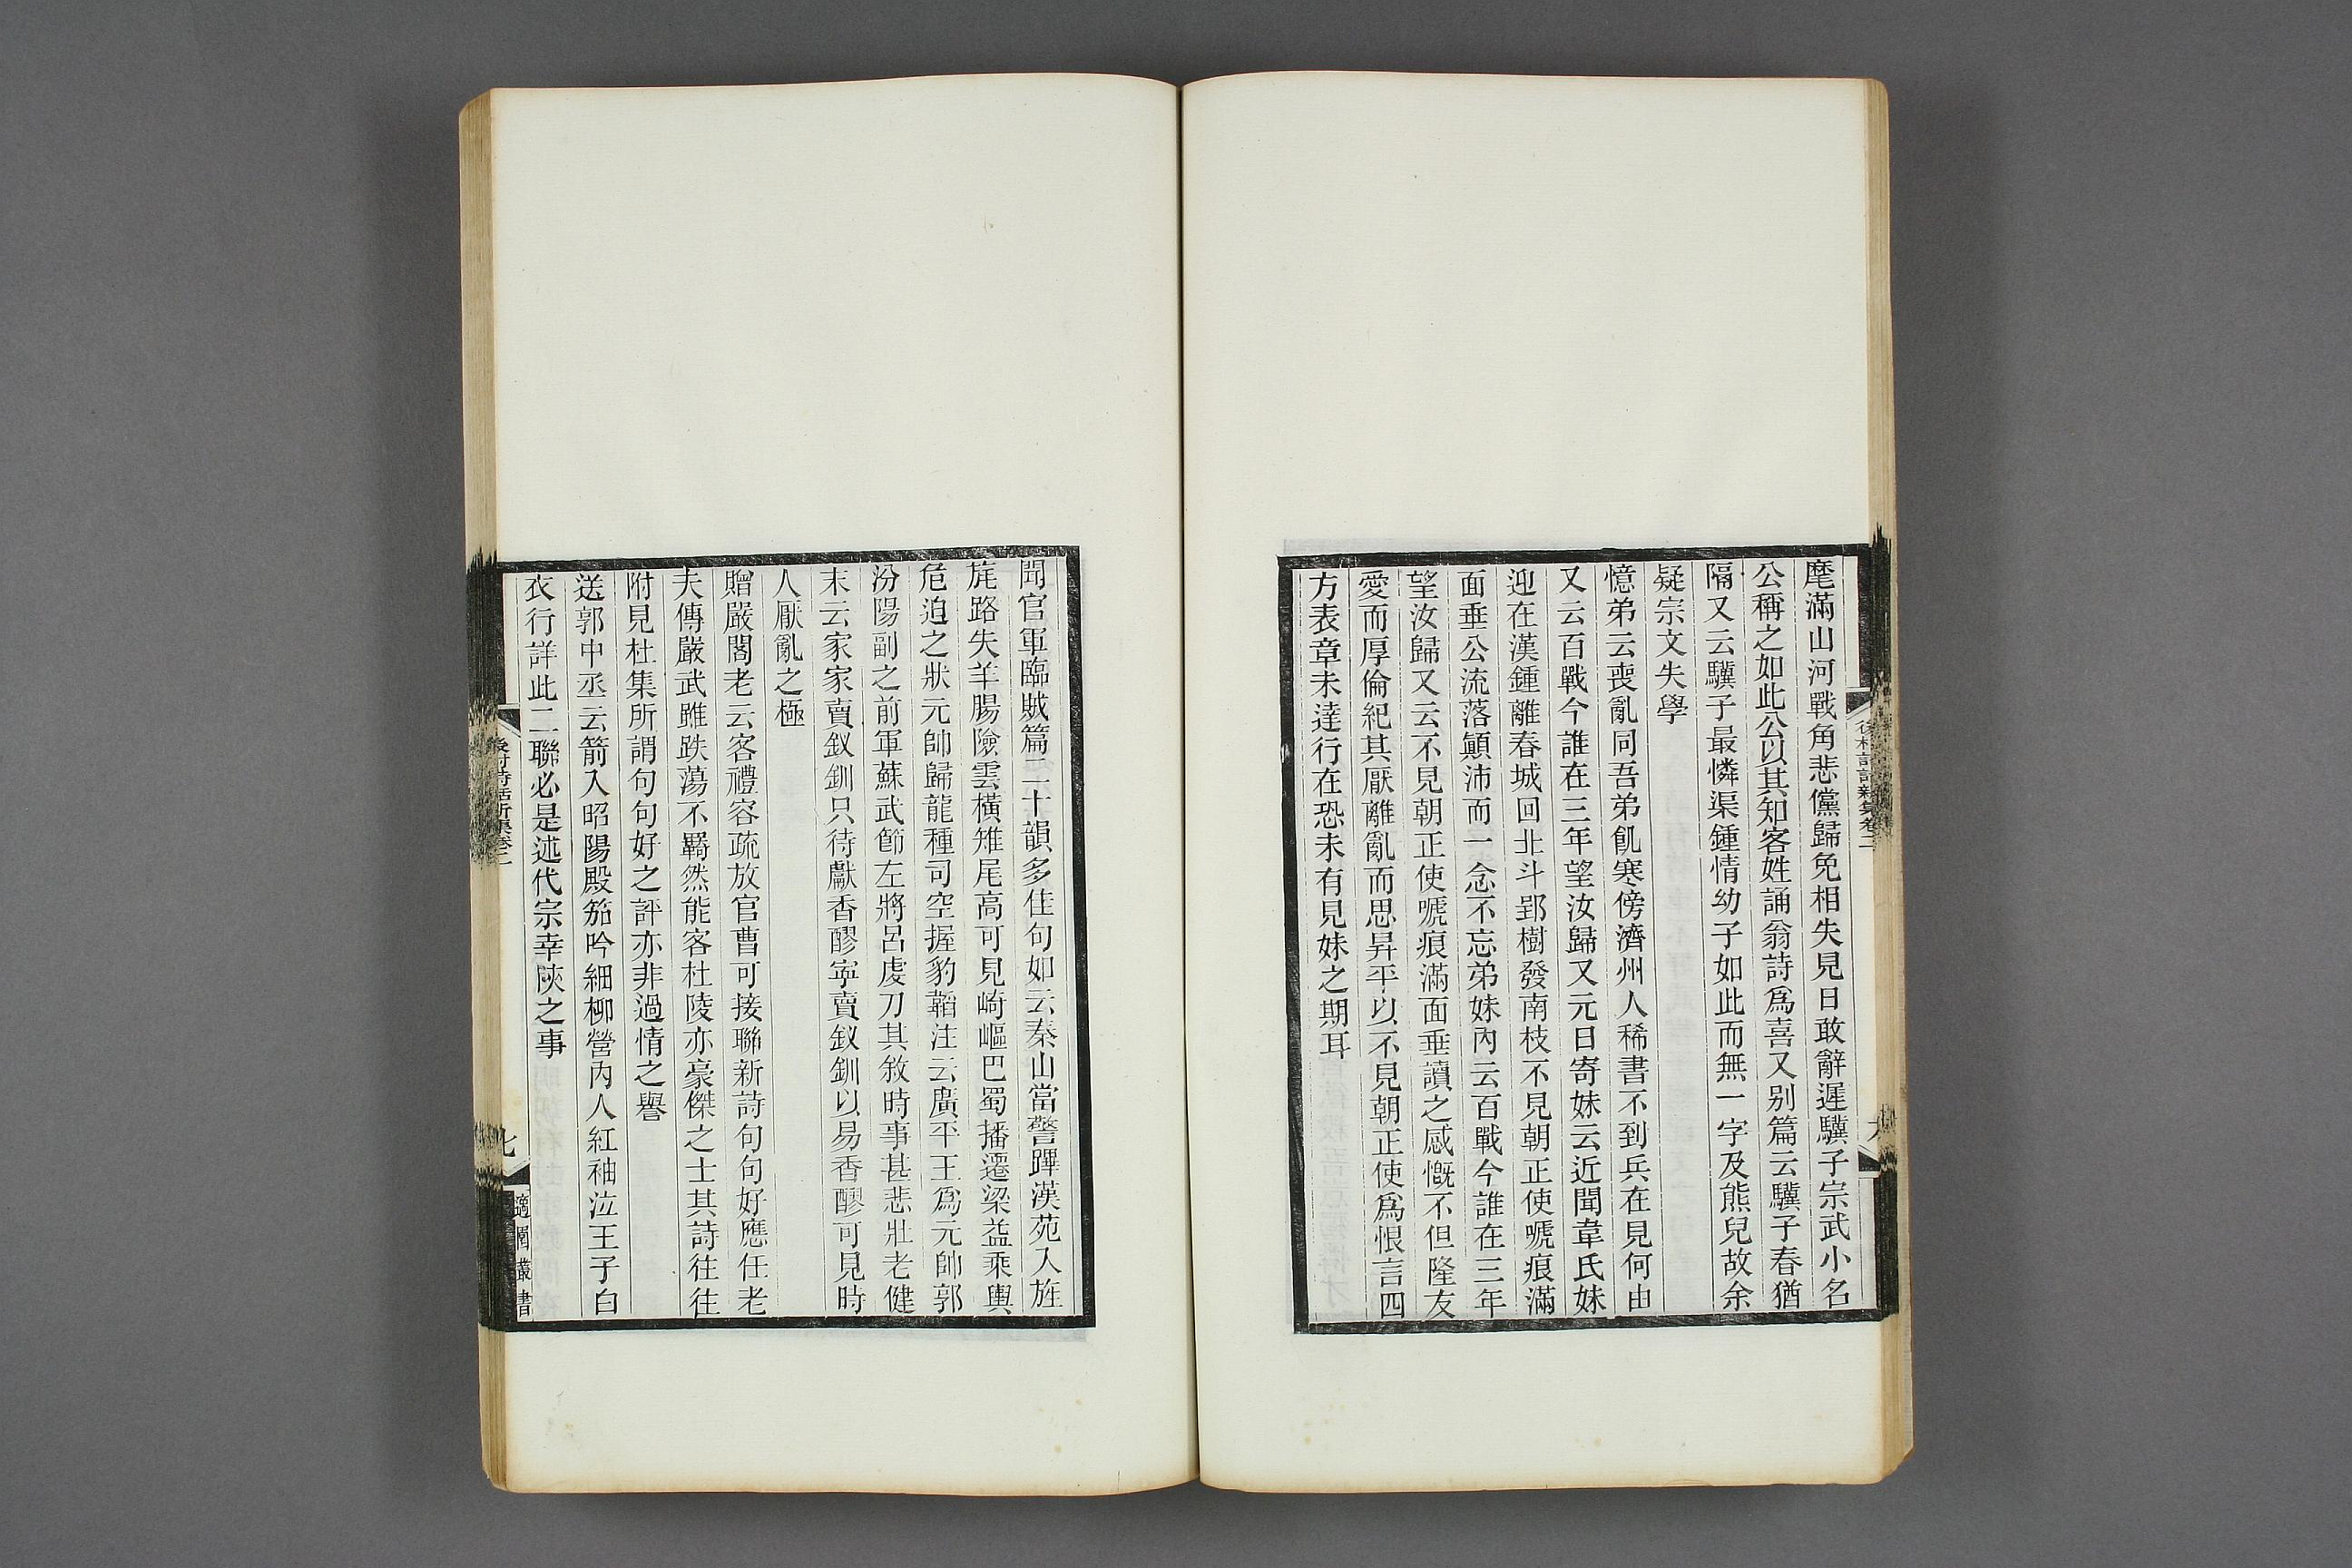 麾滿山河戰角悲儻歸免相失見日敢辭遲驥子宗武小名
公稱之如此公以其知客姓誦翁詩爲喜又别篇云驥子春猶
隔又云驥子最憐渠鍾情幼子如此而無一字及熊兒故余
疑宗文失學
憶弟云喪亂同吾弟飢寒傍濟州人稀書不到兵在見何由
又云百戰今誰在三年望汝歸又元日寄妹云近聞韋氏妹
迎在漢鍾離春城回北斗郢樹發南枝不見朝正使嗁痕滿
面垂公流落顚沛而一念不忘弟妹內云百戰今誰在三年
望汝歸又云不見朝正使嗁痕滿面垂讀之感慨不但隆友
愛而厚倫紀其厭離亂而思昇平以不見朝正使爲恨言四
方表章未達行在恐未有見妹之期耳
聞官軍臨賊篇二十韻多佳句如云秦山當警蹕漢苑入旌
旄路失羊腸險雲橫雉尾高可見崎嶇巴蜀播遷梁益乘輿
危迫之狀元帥歸龍種司空握豹韜注云廣平王爲元帥郭
汾陽副之前軍蘇武節左將呂虔刀其敘時事甚悲壯老健
末云家家賣釵釧只待獻香醪寜賣釵釧以易香醪可見時
人厭亂之極
贈嚴閣老云客禮容疏放官曹可接聯新詩句句好應任老
夫傳嚴武雖跌蕩不羇然能客杜陵亦豪傑之士其詩往往
附見杜集所謂句句好之評亦非過情之譽
送郭中丞云箭入昭陽殿笳吟細柳營內人紅袖泣王子白
衣行詳此二聯必是述代宗幸陝之事
七
適園叢書